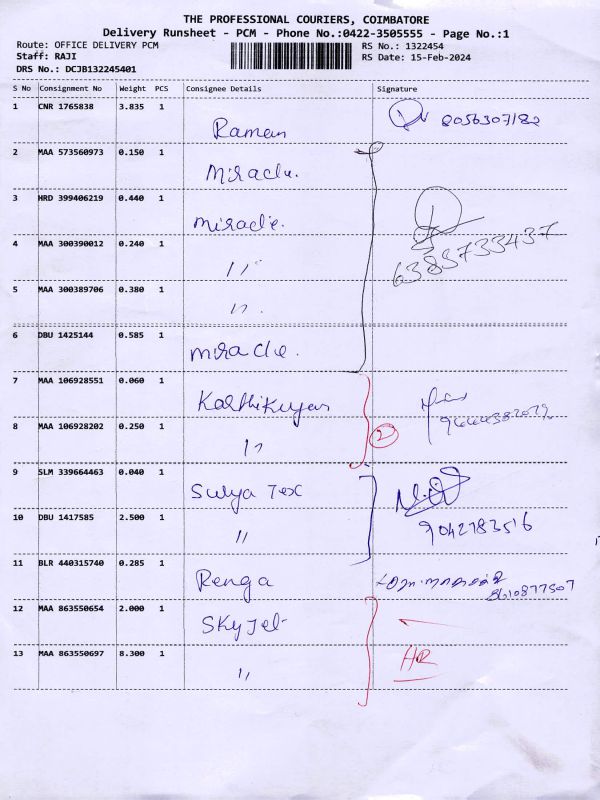 THE PROFESSIONAL COURIERS, COIMBATORE
Delivery Runsheet - PCM - Phone No.:0422-3505555 - Page No.:1
Route: OFFICE DELIVERY PCM RS No.: 1322454
Staff: RAJI RS Date: 15-Feb-2024
DRS No.: DCJB132245401
S No Consignment No Weight PCS Consignee Details Signature
1 CNR 1765838 3.835 1 Raman 8056307182
2 MAA 573560973 0.150 1 Miracle.
3 HRD 399406219 0.440 1 miracle.
4 MAA 300390012 0.240 1 〃 6383733437
5 MAA 300389706 0.380 1 〃
6 DBU 1425144 0.585 1 miracle.
7 MAA 106928551 0.060 1 Karthikeyan
8 MAA 106928202 0.250 1 〃 2
9 SLM 339664463 0.040 1 Surya Tex
10 DBU 1417585 2.500 1 〃 9042783516
11 BLR 440315740 0.285 1 Renga 8610877507
12 MAA 863550654 2.000 1 SkyJet
13 MAA 863550697 8.300 1 〃